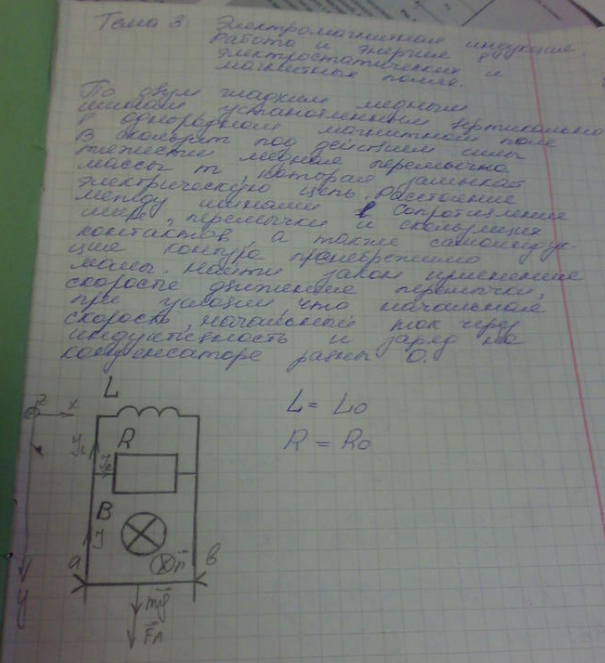 Тема 3 Электромагнитная индукция.
Работа и энергия в
электростатических и
магнитных полях.
По двум гладким медным
шинам установленным вертикально
в однородном магнитном поле
В скользит под действием силы
тяжести медная перемычка
массы m, которая замыкает
электрическую цепь. Расстояние
между шинами l. Сопротивление
шин, перемычки и скользящих
контактов, а также самоиндук-
ция контура пренебрежимо
малы. Найти закон изменения
скорости движения перемычки,
при условии, что начальная
скорость, начальный ток через
индуктивность и заряд на
конденсаторе равны 0.
L
L = L0
z x
R
R = R0
B
J
a n b
mg
y
FA